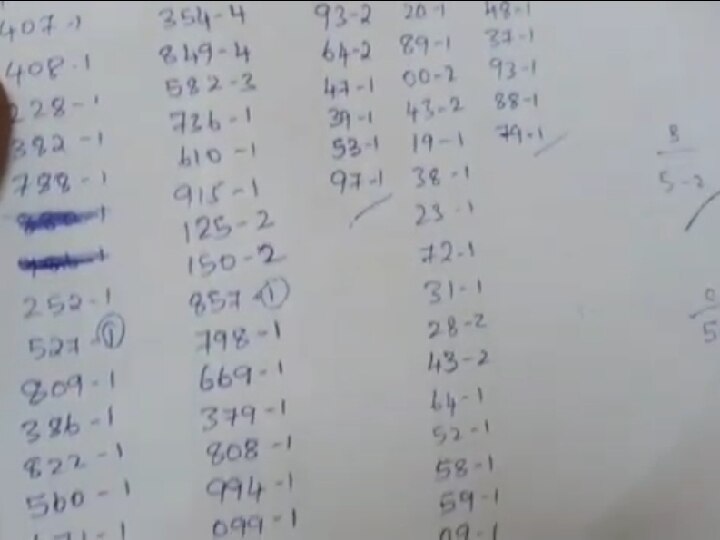 407-1
408-1
228-1
382-1
788-1
252-1
527-1
809-1
386-1
822-1
560-1
354-4
849-4
582-3
736-1
610-1
915-1
125-2
150-2
857-1
798-1
669-1
379-1
808-1
994-1
099-1
93-2
64-2
47-1
39-1
53-1
97-1
20-1
89-1
00-2
43-2
19-1
38-1
23-1
72-1
31-1
28-2
43-2
64-1
52-1
58-1
59-1
09-1
48-1
37-1
93-1
88-1
79-1
8
5-2
0
5